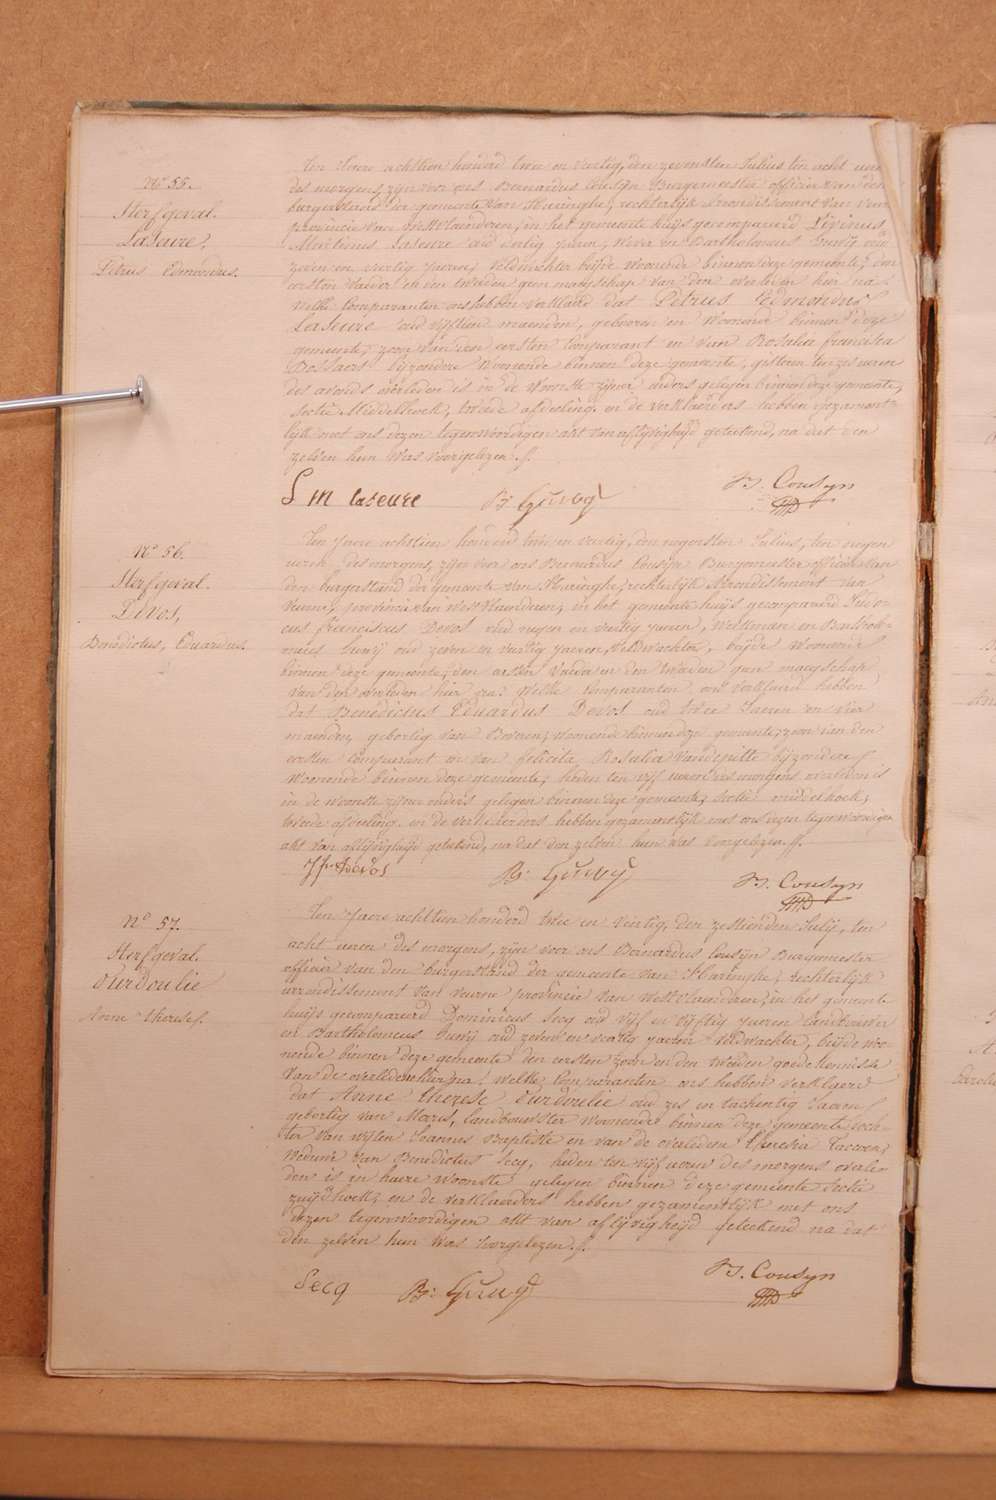 N° 55.
Sterfgeval.
Laseure,
Petrus Edmondus.
Ten Jaere achttien honderd twee en veertig, den zevensten Julius ten acht uren
des morgens, zijn voor ons Bernardus Cousijn Burgemeester officier van den
burgerstand der gemeente van Haringhe, rechterlijk Arrondissement van Veurne
provincie van Westvlaenderen, in het gemeente huijs gecompareerd Livinus
Laseure oud dertig jaeren, Wever en Bartholomeus Guwij oud
zeven en veertig jaeren, Veldwachter beijde Woonende binnen deze gemeente, den
eersten Vader en den tweeden geen maegschap van den overleden hier na.
Welke Comparanten ons hebben verklaerd dat Petrus Edmondus
Laseure oud vijftien maenden, geboren en Woonende binnen deze
gemeente, zoon van den eersten Comparant en van Rosalia francisca
Bossaert bijzondere Woonende binnen deze gemeente, gisteren ten zes uren
des avonds overleden is in de Woonste zijner ouders gelegen binnen deze gemeente,
Sectie Middelhoek, tweede afdeeling. en de verklaerders hebben gezament-
lijk met ons dezen tegenwoordigen akt van aflijvigheijd geteekend, na dat den
zelven hun Was voorgelezen.
L M laseure B: Guwij B. Cousyn
N° 56.
Sterfgeval.
Devos,
Benedictus, Eduardus.
Ten Jaere achttien honderd twee en veertig, den negensten Julius, ten negen
uren des morgens, zijn voor ons Bernardus Cousijn Burgemeester officier van
den burgerstand der gemeente van Haringhe, rechterlijk Arrondissement van
Veurne, provincie van West Vlaenderen, in het gemeente huijs gecompareerd Judo-
cus franciscus Devos oud negen en veertig jaeren, Werkman en Bartholo-
meus Guwij oud zeven en veertig jaeren, Veldwachter, beijde Woonende
binnen deze gemeente, den eersten Vader en den tweeden geen maegschap
van den overleden hier na. Welke Comparanten ons verklaerd hebben
dat Benedictus Eduardus Devos oud twee Jaeren en vier
maenden, geboortig van Beveren, woonend binnen deze gemeente, zoon van den
eersten comparant en van felicita Rosalia Vandeputte bijzondere
Woonende binnen deze gemeente, heden ten vijf uren des morgens overleden is
in de woonste zijner ouders gelegen binnen deze gemeente, Sectie middelhoek,
tweede afdeeling. en de verklaerders hebben gezamentlijk met ons dezen tegenwoordigen
akt van aflijvigheijd geteekend, na dat den zelven hun Was voorgelezen.
J f Devos B. Guwij B. Cousyn
N° 57.
Sterfgeval.
Durdoulie
Anne Therese.
Ten Jaere achttien honderd twee en veertig, den zestienden Julij, ten
acht uren des morgens, zijn voor ons Bernardus Cousijn Burgemeester
officier van den burgerstand der gemeente van Haringhe, rechterlijk
arrondissement van veurne provincie van West Vlaenderen, in het gemeente
huijs gecompareerd Dominicus Secq oud vijf en vijftig jaeren Landbouwer
en Bartholomeus Guwij oud zeven en veertig jaeren Veldwachter, beijde woo-
nende binnen deze gemeente den eersten zoon en den tweeden goede kennisse
van de overledene hier na. welke Comparanten ons hebben verklaerd
dat Anne Therese Durdoulie oud zes en tachentig Jaeren
geboortig van Landbouwster Woonende binnen deze gemeente doch-
ter van wijlen Joannes Baptiste en van de overledene Theresia
Weduwe van Benedictus Secq, heden ten vijf uren des morgens overle-
den is in haere Woonste gelegen binnen deze gemeente Sectie
zuijdhoek, en de verklaerders hebben gezamentlijk met ons
dezen tegenwoordigen akt van aflijvigheijd geteekend na dat
den zelven hun Was voorgelezen.
Secq B: Guwij B. Cousyn